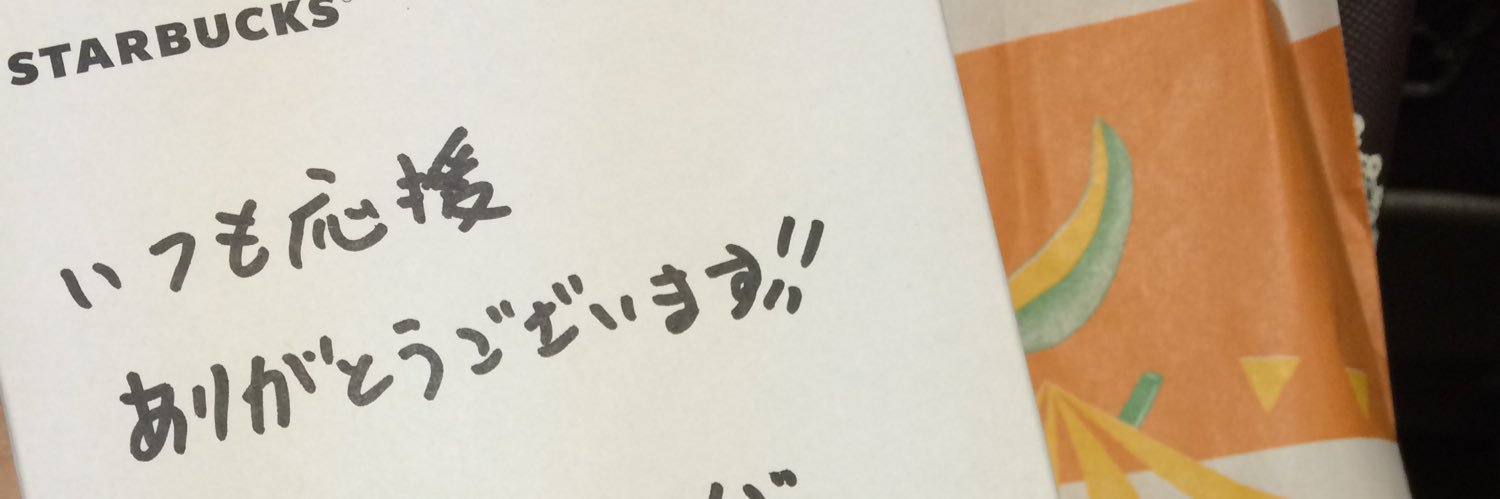 STARBUCKS
いつも応援
ありがとうございます!!